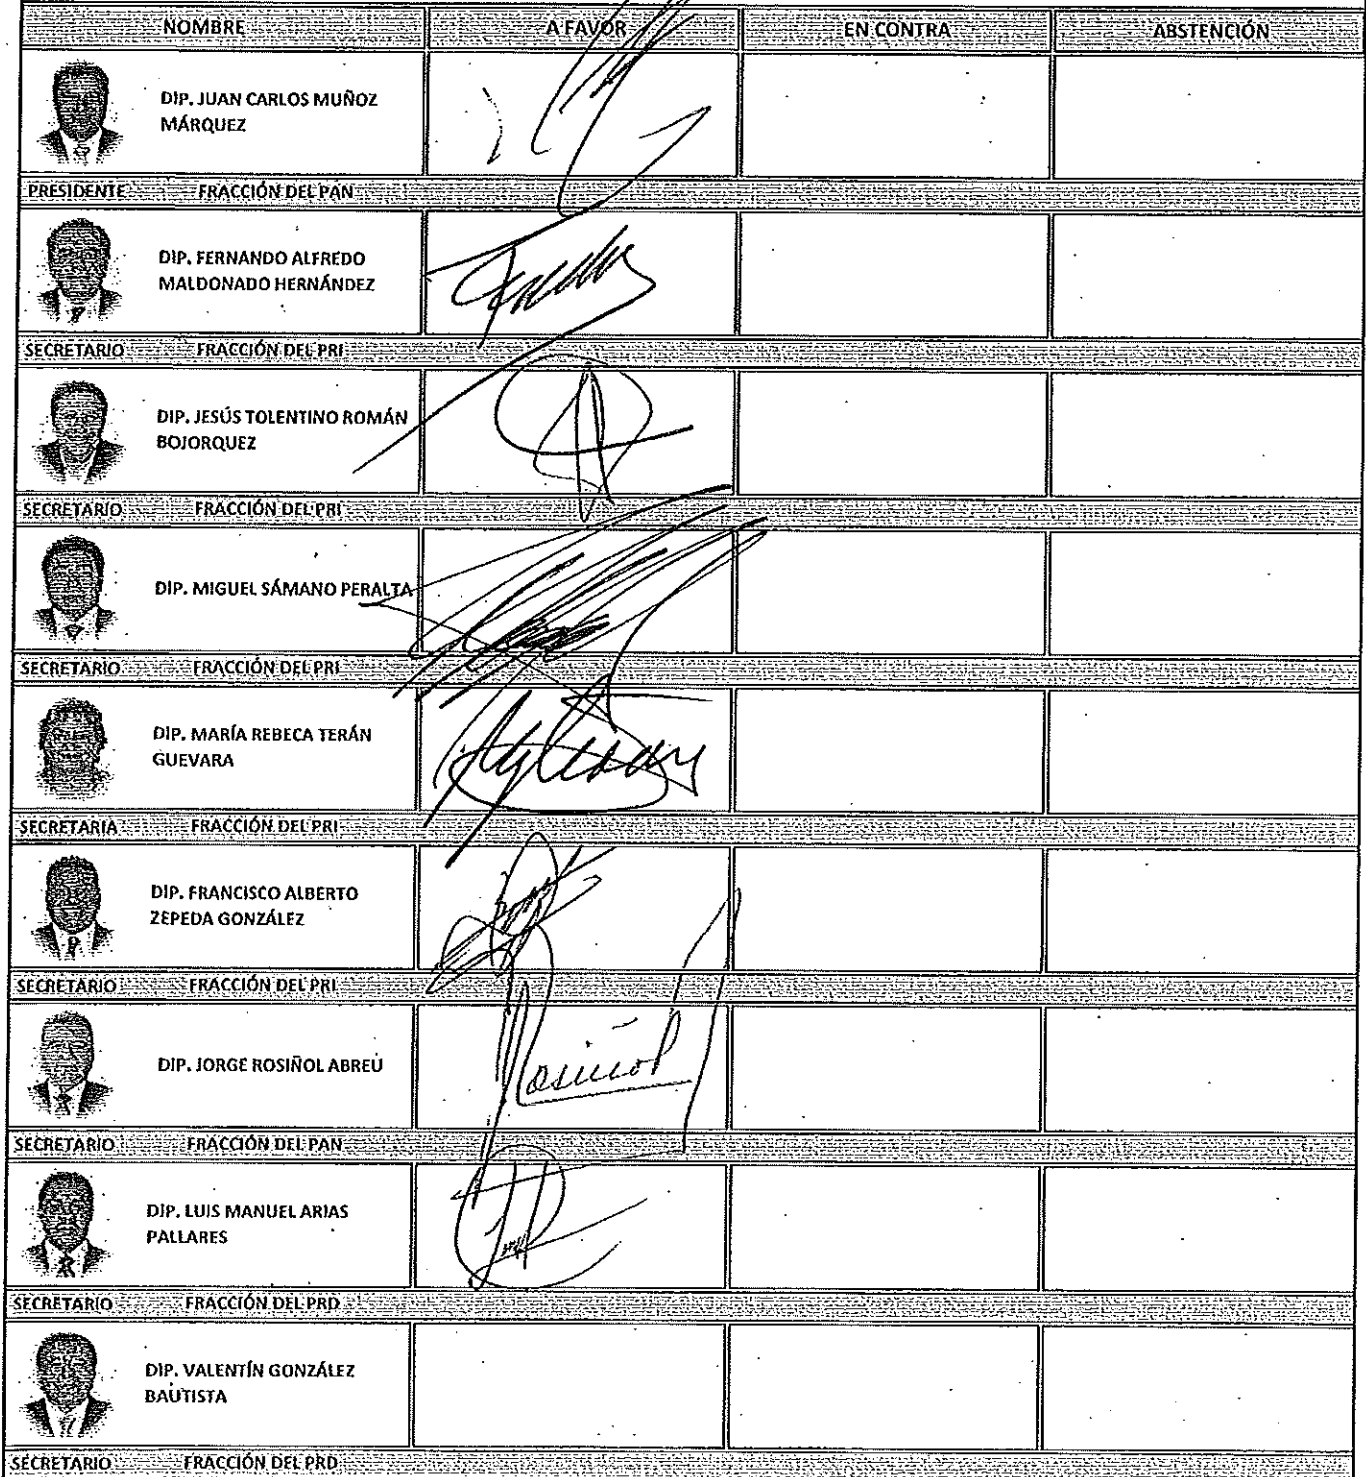 NOMBRE A FAVOR EN CONTRA ABSTENCIÓN
DIP. JUAN CARLOS MUÑOZ
MÁRQUEZ
PRESIDENTE FRACCIÓN DEL PAN
DIP. FERNANDO ALFREDO
MALDONADO HERNÁNDEZ
SECRETARIO FRACCIÓN DEL PRI
DIP. JESÚS TOLENTINO ROMÁN
BOJORQUEZ
SECRETARIO FRACCIÓN DEL PRI
DIP. MIGUEL SÁMANO PERALTA
SECRETARIO FRACCIÓN DEL PRI
DIP. MARÍA REBECA TERÁN
GUEVARA
SECRETARIA FRACCIÓN DEL PRI
DIP. FRANCISCO ALBERTO
ZEPEDA GONZÁLEZ
SECRETARIO FRACCIÓN DEL PRI
DIP. JORGE ROSIÑOL ABREU
Rosiñol
SECRETARIO FRACCIÓN DEL PAN
DIP. LUIS MANUEL ARIAS
PALLARES
SECRETARIO FRACCIÓN DEL PRD
DIP. VALENTÍN GONZÁLEZ
BAUTISTA
SECRETARIO FRACCIÓN DEL PRD